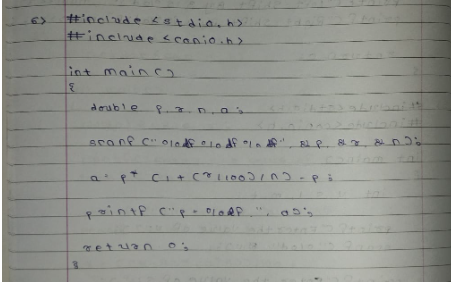 6) #include <stdio.h>
#include <conio.h>
int main()
{
double p, r, n, a;
scanf ("%lf %lf %lf", &p, &r, &n);
a = p * (1 + (r/100)/n) - p;
printf ("p = %lf.", a);
return 0;
}